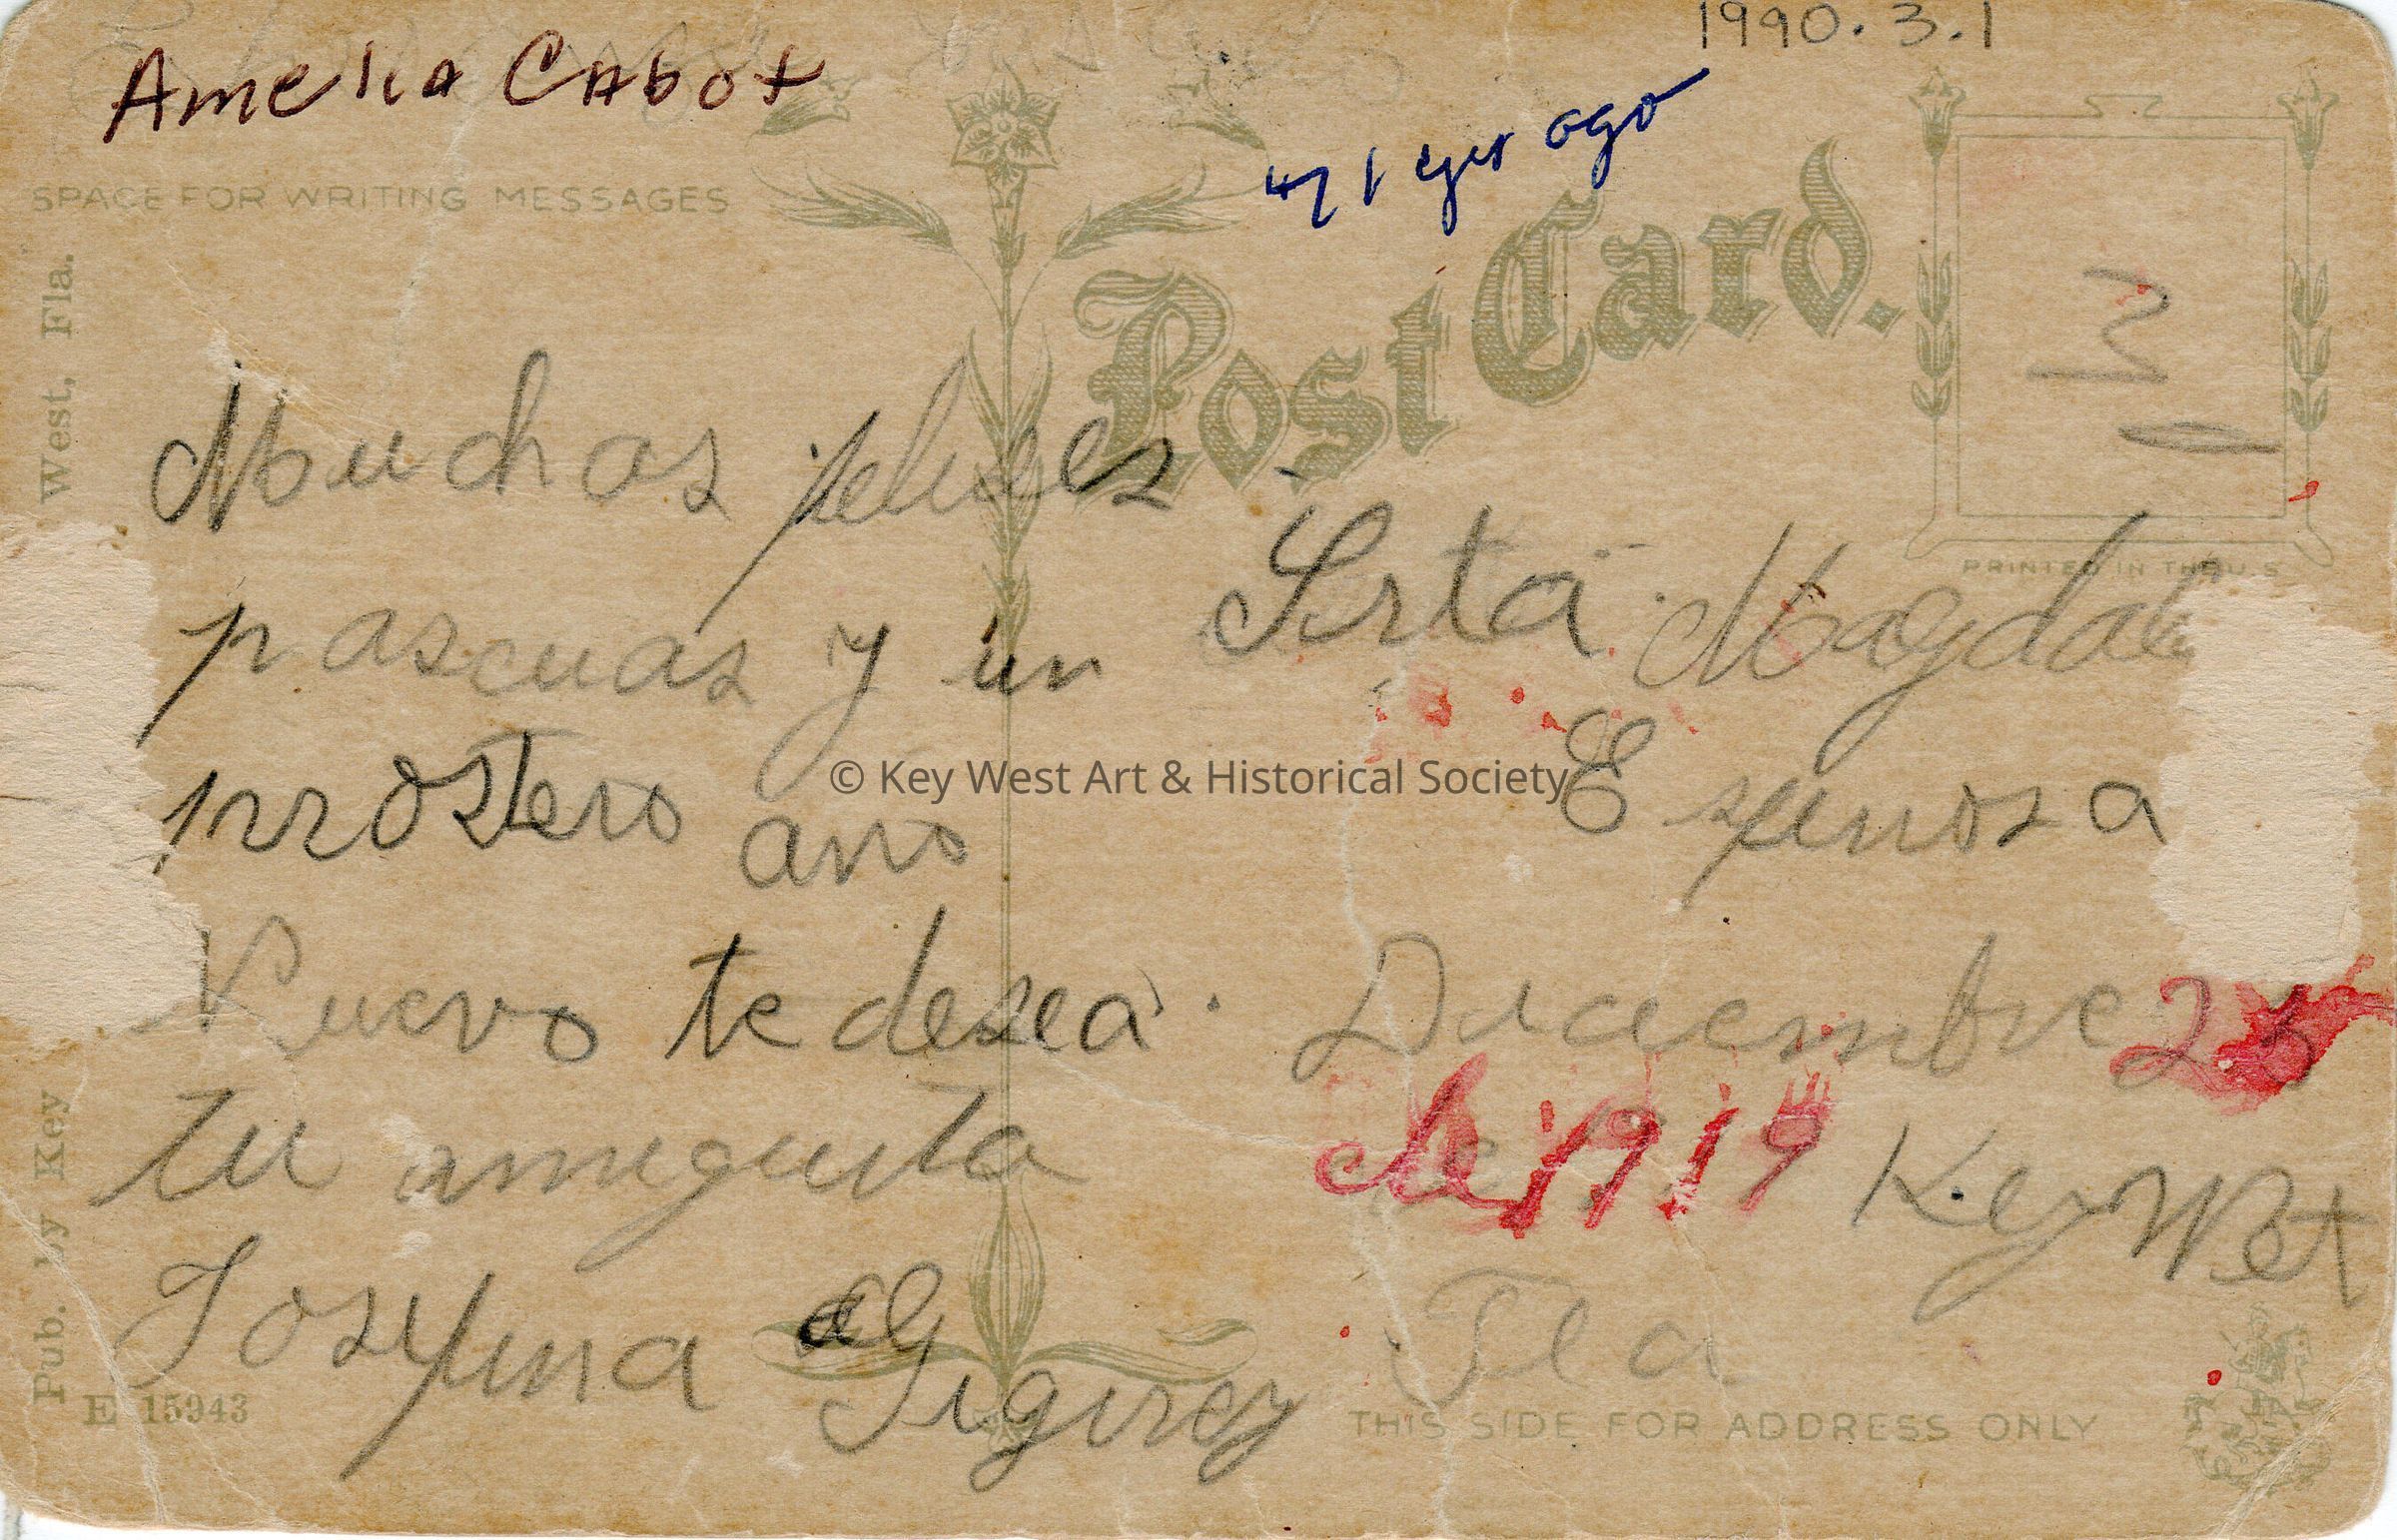 1990.3.1
Amelia Cabot
71 yrs ago
SPACE FOR WRITING MESSAGES
Post Card.
PRINTED IN THE U.S
Muchas felices
pascuas y un
prostero ano
Nuevo te desea.
tu amiguita
Josefina
Srta. Magdal
Espinosa
Diciembre 23
de 1919 Key West
Fla
© Key West Art & Historical Society
Pub. by Key West, Fla.
E 15943
THIS SIDE FOR ADDRESS ONLY